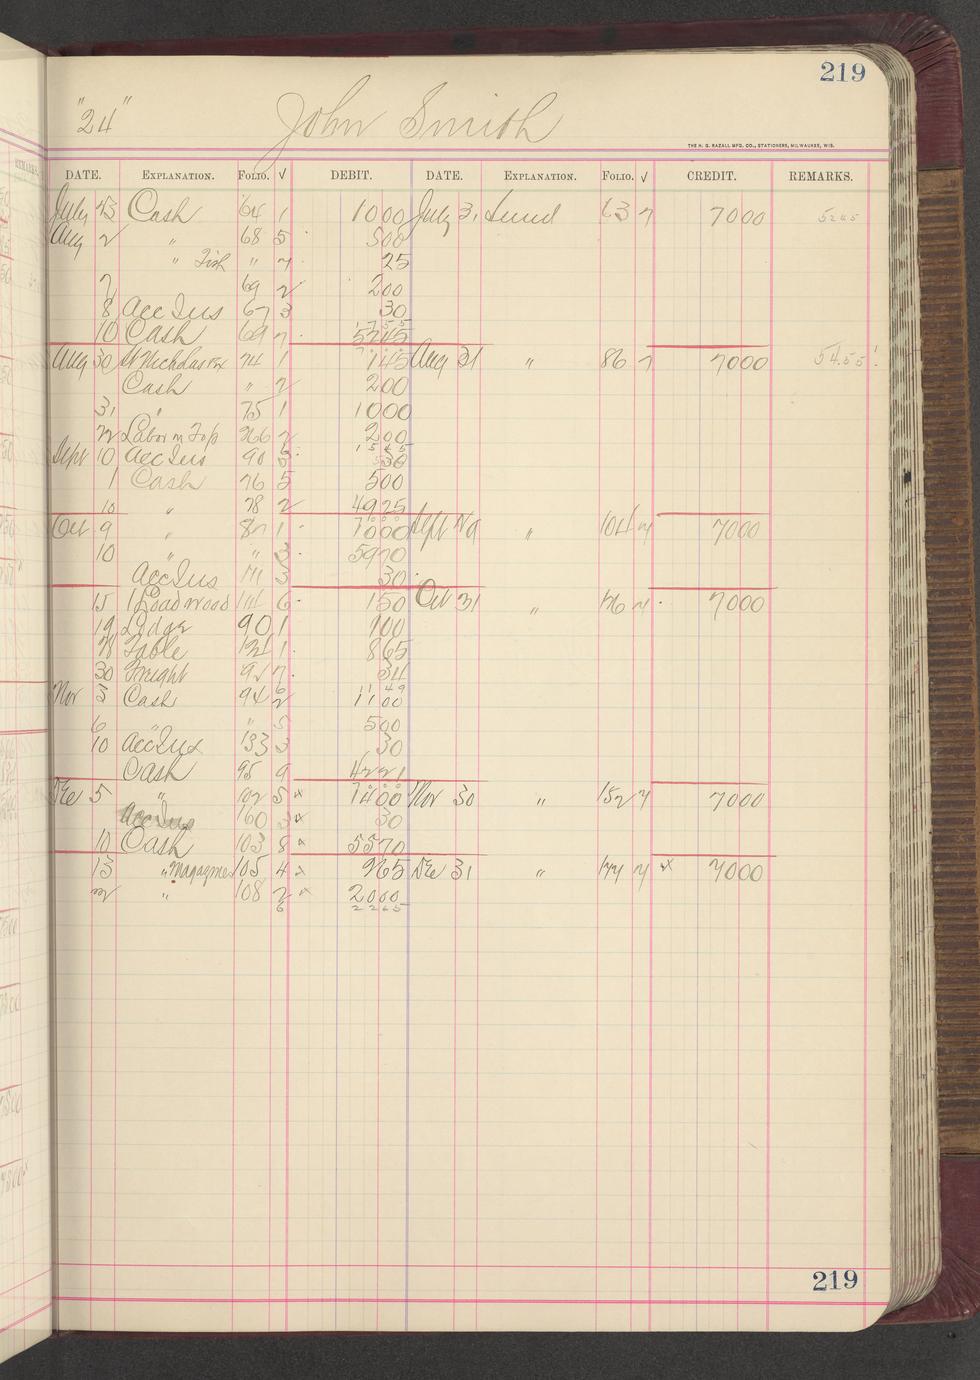 219
"24" John Smith
THE H. G. RAZALL MFG. CO., STATIONERS, MILWAUKEE, WIS.
DATE. EXPLANATION. FOLIO. √ DEBIT. DATE. EXPLANATION. FOLIO. √ CREDIT. REMARKS.
July 23 Cash 64 1 1000 July 31 Sund 63 7 7000 5245
Aug 2 " 68 5 500
" Fish " 7 25
7 69 2 200
8 Acc Ins 67 3 30
10 Cash 69 7 5245
Aug 30 St Nicholas 74 1 145 Aug 31 " 86 7 7000 5455
Cash " 2 200
31 " 75 1 1000
22 Labor m Top 2 200
Sept 10 Acc Ins 90 3 30
1 Cash 76 5 500
10 " 78 2 4925
Oct 9 " 87 1 1000 Sept " 104 7 7000
10 " " 3 5970
Acc Ins 111 3 30
15 1 Load wood 114 6 150 Oct 31 " 126 7 7000
19 Lodge 90 1 100
Table 121 1 865
30 Freight 92 7 34
Nov 3 Cash 94 2 1100
6 " " 5 500
10 Acc Ins 133 3 30
Cash 95 9 4221
Dec 5 " 102 5 x 1400 Nov 30 " 152 7 7000
Acc Ins 160 3 x 30
10 Cash 103 8 x 5570
13 " Magazines 105 4 x 265 Dec 31 " 177 7 x 7000
22 " 108 2 x 2000
6 2265
219